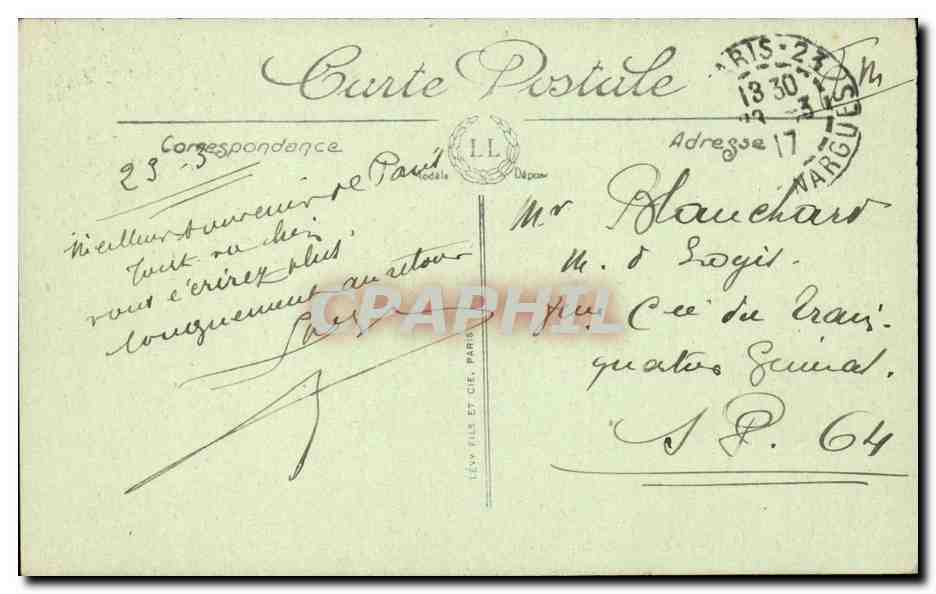 Carte Postale
Correspondance
LL
Modèle Déposé
Adresse
PARIS - 23
13 30
23 -3
17
VARGUES
F M
23 - 3
Meilleur souvenir de Paris
Tout va bien
vous écrirez plus
longuement au retour
Mr Blanchard
M. d Logis.
Cie du Train.
quartier Général.
S P. 64
LÉVY FILS ET CIE, PARIS
CPAPHIL